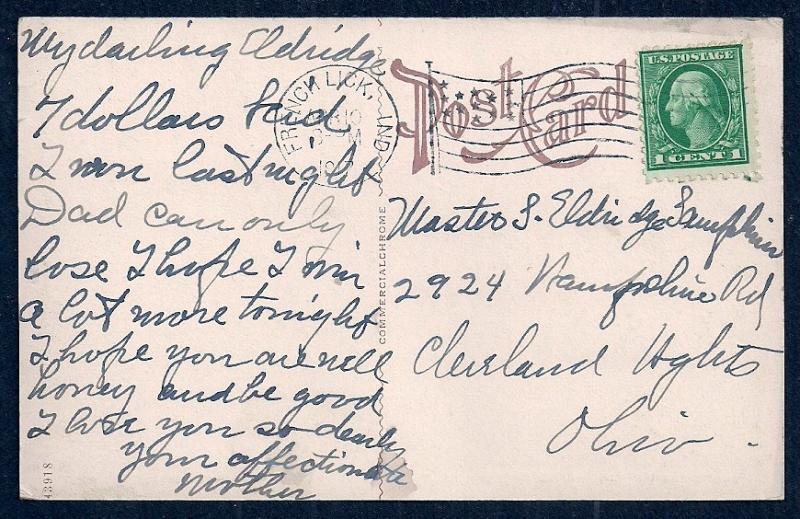 My darling Eldridge
7 dollars
I won last night
Dad can only
lose I hope I win
a lot more tonight
I hope you are well
honey and be good
I love you so dearly
your affectionate
Mother
Post Card
FRENCH LICK, IND
U.S. POSTAGE
1 CENT 1
Master S. Eldridge
2924 Hampshire Rd
Cleveland Hghts
Ohio
COMMERCIALCHROME